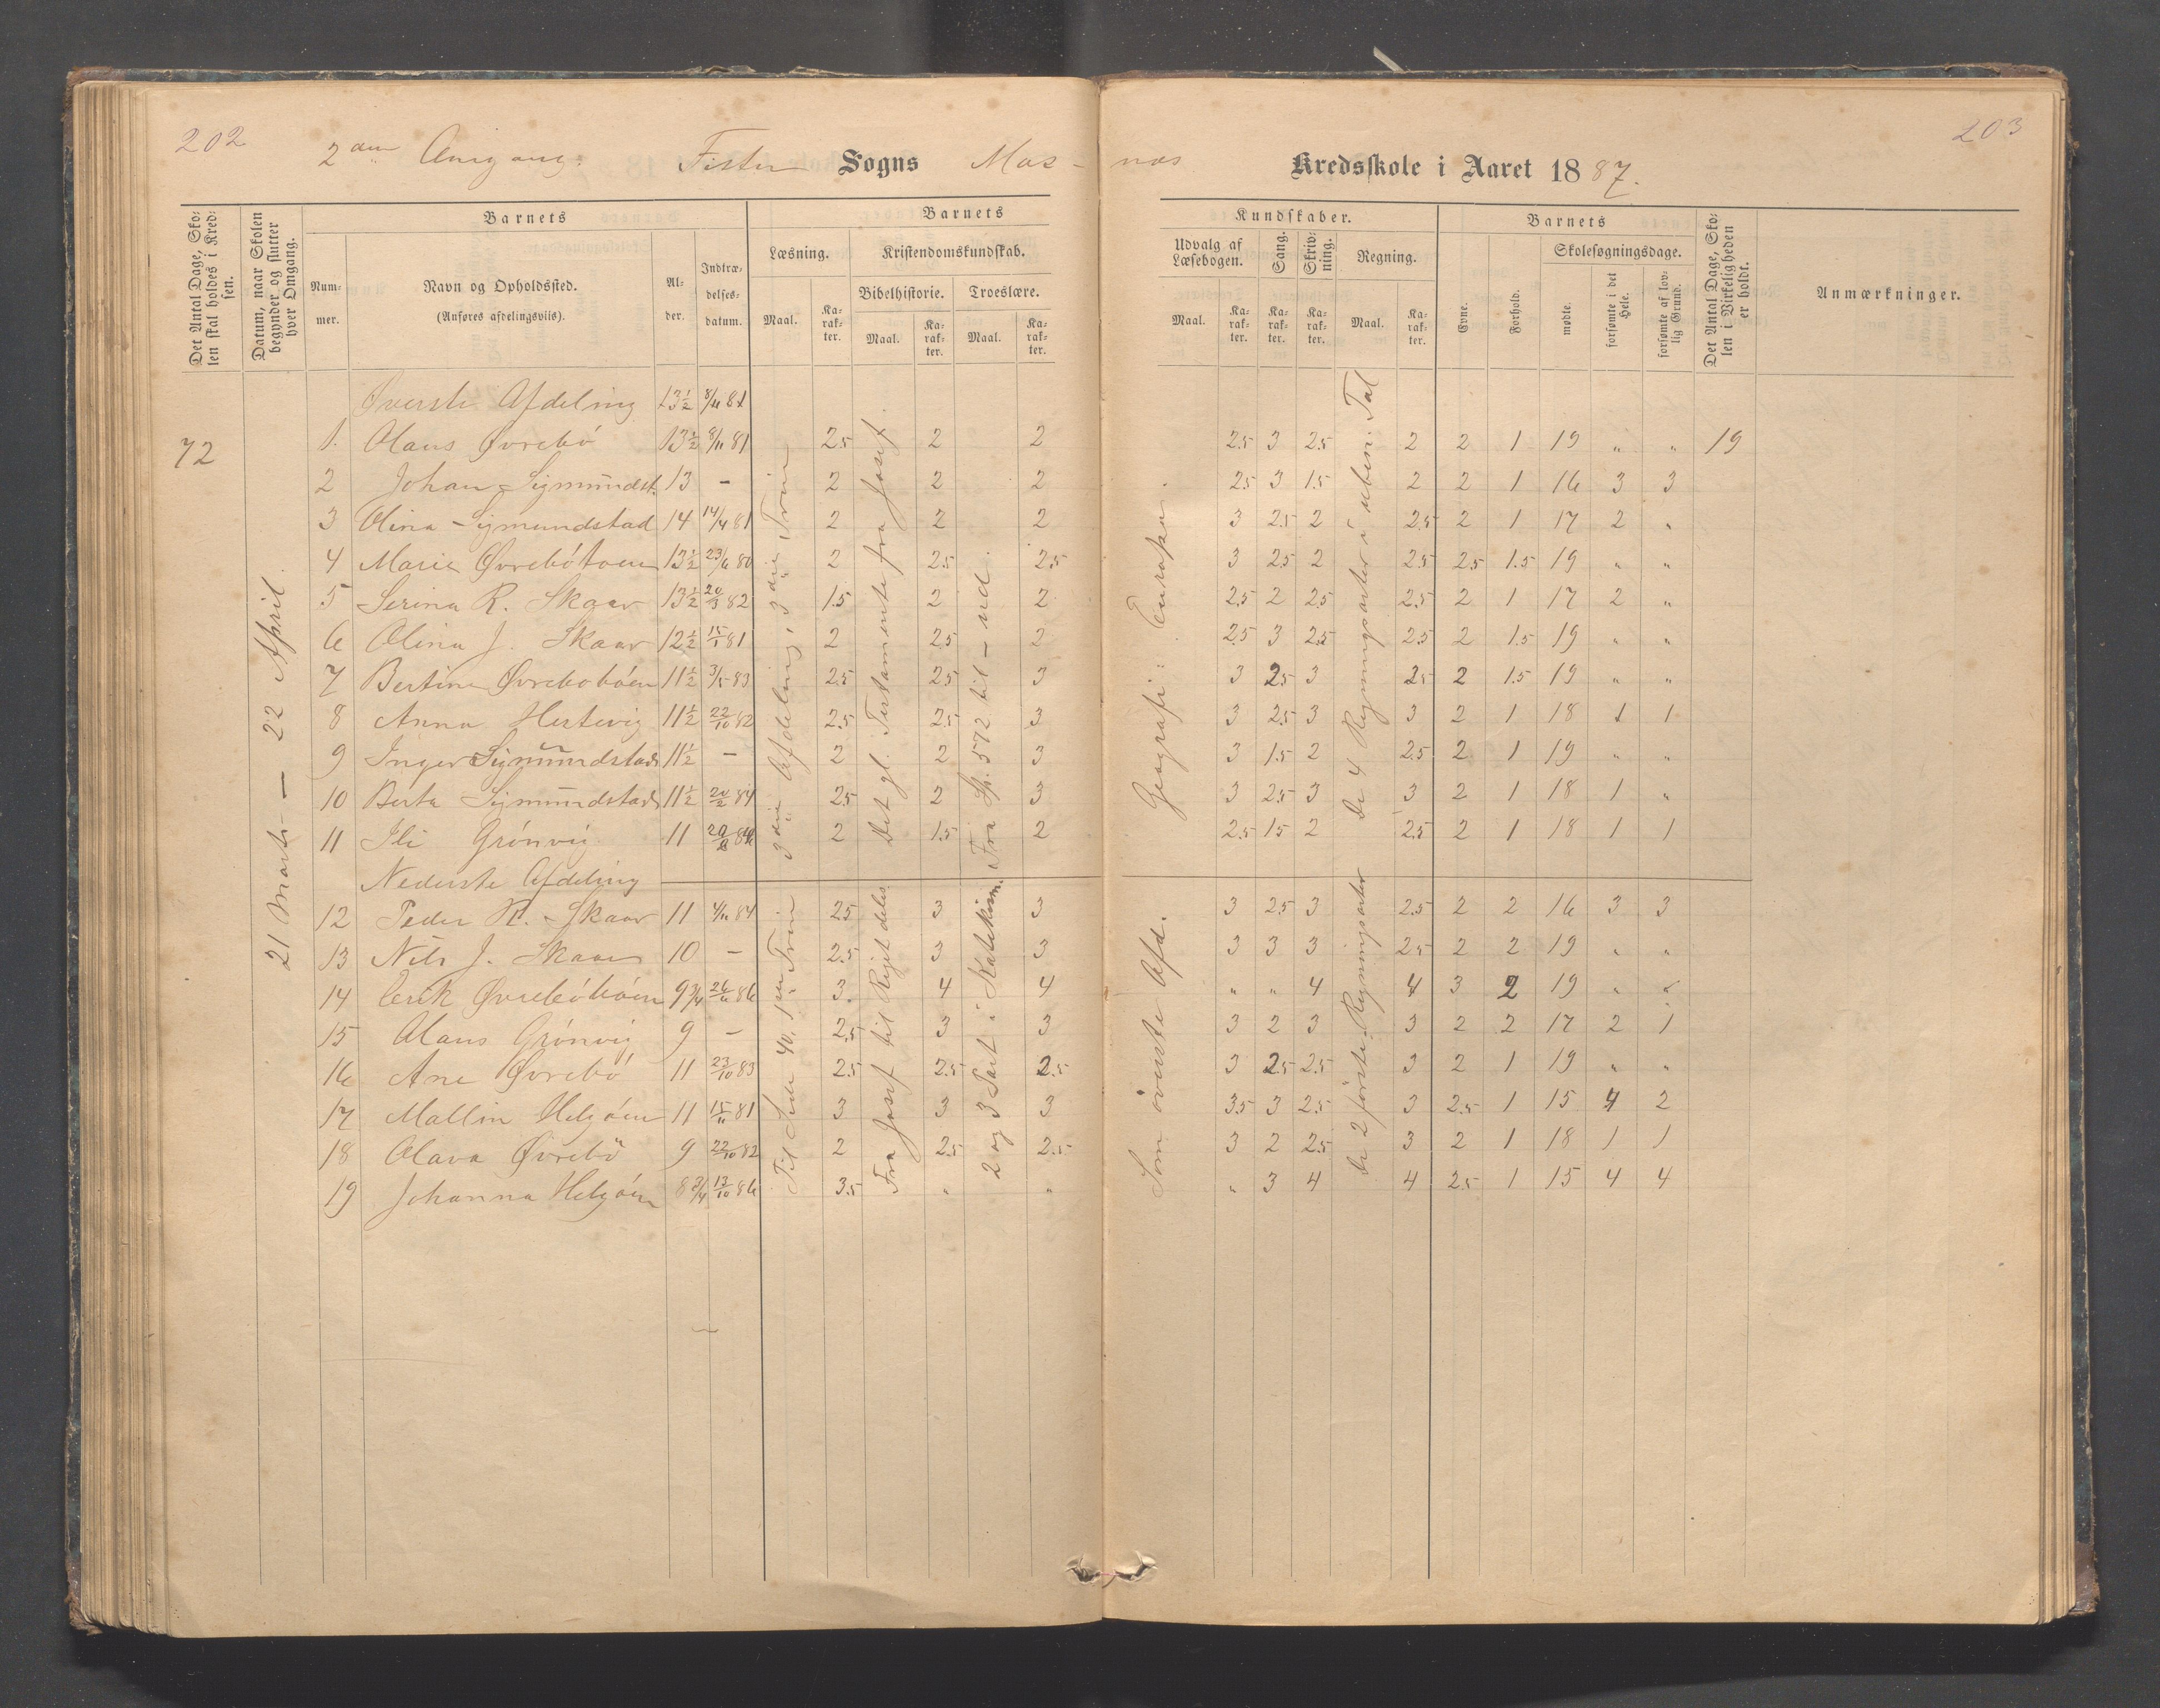 202
203
2den Omgang.
Fister Sogns Mos- næs Kredsskole i Aaret 1887.
Det Antal Dage, Skolen skal holdes i Kredsen.
Datum, naar Skolen begynder og slutter hver Omgang.
Barnets
Nummer.
Navn og Opholdssted.
(Anføres afdelingsviis).
Alder.
Indtrædelsesdatum.
Barnets
Læsning.
Maal.
Karakter.
Kristendomskundskab.
Bibelhistorie.
Maal.
Karakter.
Troeslære.
Maal.
Karakter.
Kundskaber.
Udvalg af Læsebogen.
Maal.
Karakter.
Sang.
Karakter.
Skrivning.
Karakter.
Regning.
Maal.
Karakter.
Barnets
Evne.
Forhold.
Skolesøgningsdage.
mødte.
forsømte i det Hele.
forsømte af lovlig Grund.
Det Antal Dage, Skolen i Virkeligheden er holdt.
Anmærkninger.
72
21 Marts — 22 April.
3die Afdeling, 3die Trin
Det gl. Testamente fra Josef
Fra Sp. 572 til - ud
Geografi: Europa.
De 4 Regningsarter i uben. Tal
Øverste Afdeling 13½ 8/11 81
1. Olaus Øvrebö 13½ 8/11 81 2.5 2 2 2.5 3 2.5 2 2 1 19 „ „ 19
2 Johan Sigmundst. 13 - 2 2 2 2.5 3 1.5 2 2 1 16 3 3
3 Olina Sigmundstad 14 14/4 81 2 2 2 3 2.5 2 2.5 2 1 17 2 „
4 Marie Øvrebötoen 13½ 23/6 80 2 2.5 2.5 3 2.5 2 2.5 2.5 1.5 19 „ „
5 Serina R. Skaar 13½ 20/3 82 1.5 2 2 2.5 2 2.5 2.5 2 1 17 2 „
6 Olina J. Skaar 12½ 15/1 81 2 2.5 2 2.5 3 2.5 2.5 2 1.5 19 „ „
7 Bertine Øvreboböen 11½ 3/5 83 2.5 2.5 3 3 2.5 3 2.5 2 1.5 19 „ „
8 Anna Hertevig 11½ 22/10 82 2.5 2.5 3 3 2.5 3 3 2 1 18 1 1
9 Inger Sigmundstad 11½ - 2 2 3 3 1.5 2 2.5 2 1 19 „ „
10 Berta Sigmundstad 11½ 20/2 84 2.5 2 3 3 2.5 3 3 2 1 18 1 „
11 Ili Grönvig 11 2 1.5 2 2.5 1.5 2 2.5 2 1 18 1 1
Nederste Afdeling
Til Side 40, 1ste Trin
Fra Josef til Riget deles
2 og 3 Part i Katekism.
Som överste Afd.
De 2 förste Regningsarter
12 Peder R. Skaar 11 4/11 84 2.5 3 3 3 2.5 3 2.5 2 2 16 3 3
13 Nils J. Skaar 10 - 2.5 3 3 3 3 3 2.5 2 2 19 „ „
14 Erik Øvreböböen 9¾ 26/11 86 3. 4 4 „ „ 4 4 3 2 19 „ „
15 Olaus Grönvig 9 - 2.5 3 3 3 2 3 3 2 2 17 2 1
16 Ane Øvrebö 11 23/10 83 2.5 2.5 2.5 3 2.5 2.5 3 2 1 19 „ „
17 Mallin Helgöen 11 15/11 81 3 3 3 3.5 3 2.5 3 2.5 1 15 4 2
18 Olava Øvrebö 9 22/10 82 2 2.5 2.5 3 2 2.5 3 2 1 18 1 1
19 Johanna Helgöen 8¾ 13/10 86 3.5 „ „ „ 3 4 4 2.5 1 15 4 4